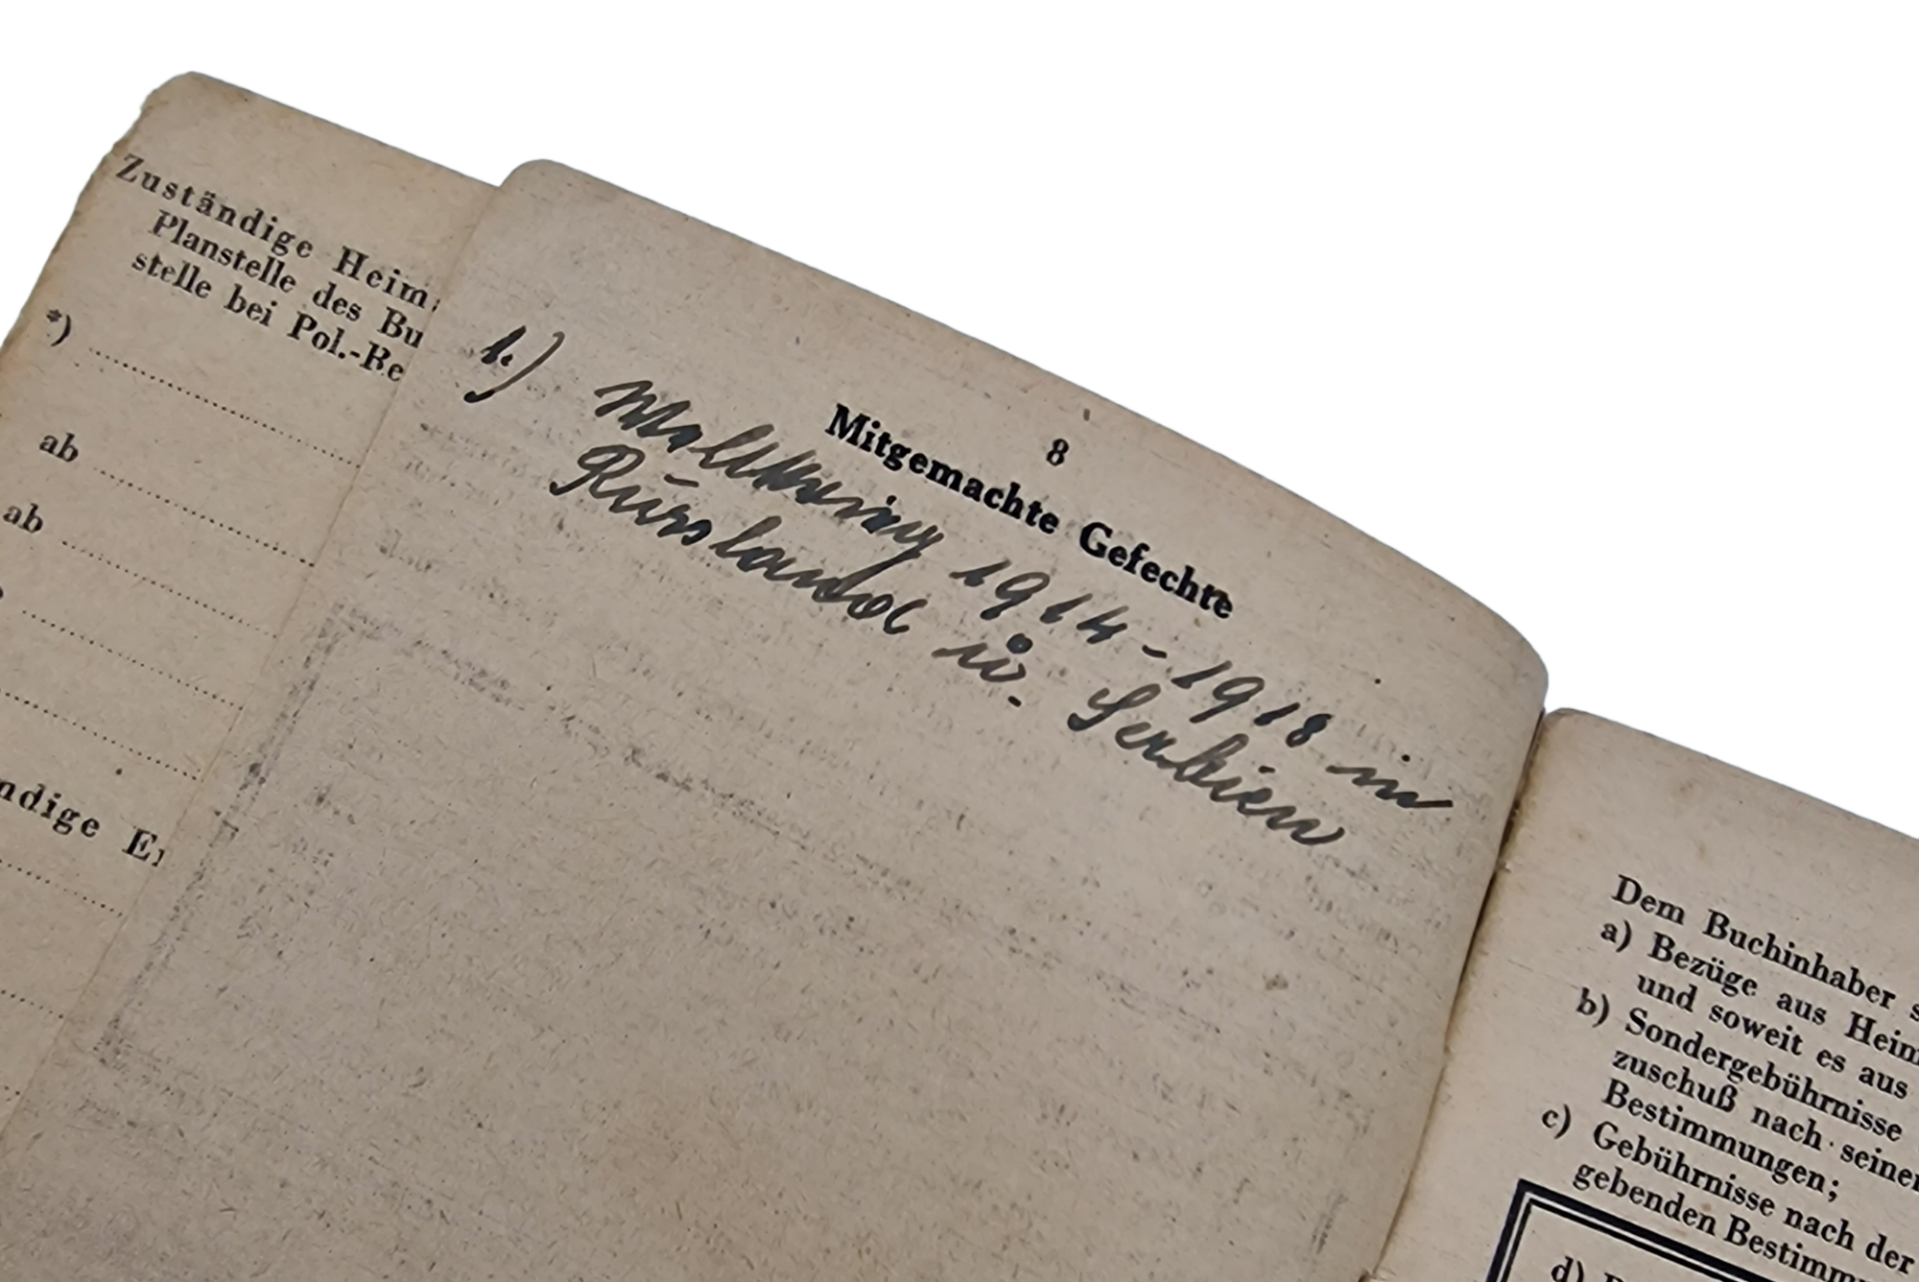 Zuständige Heim
Planstelle des Bu
stelle bei Pol.-Re
*)
ab
ab
ndige Er
8
Mitgemachte Gefechte
1.) Weltkrieg 1914-1918 in
Russland u. Serbien
Dem Buchinhaber s
a) Bezüge aus Heim
und soweit es aus
b) Sondergebührnisse
zuschuß nach seinen
Bestimmungen;
c) Gebührnisse nach der
gebenden Bestimm
d)